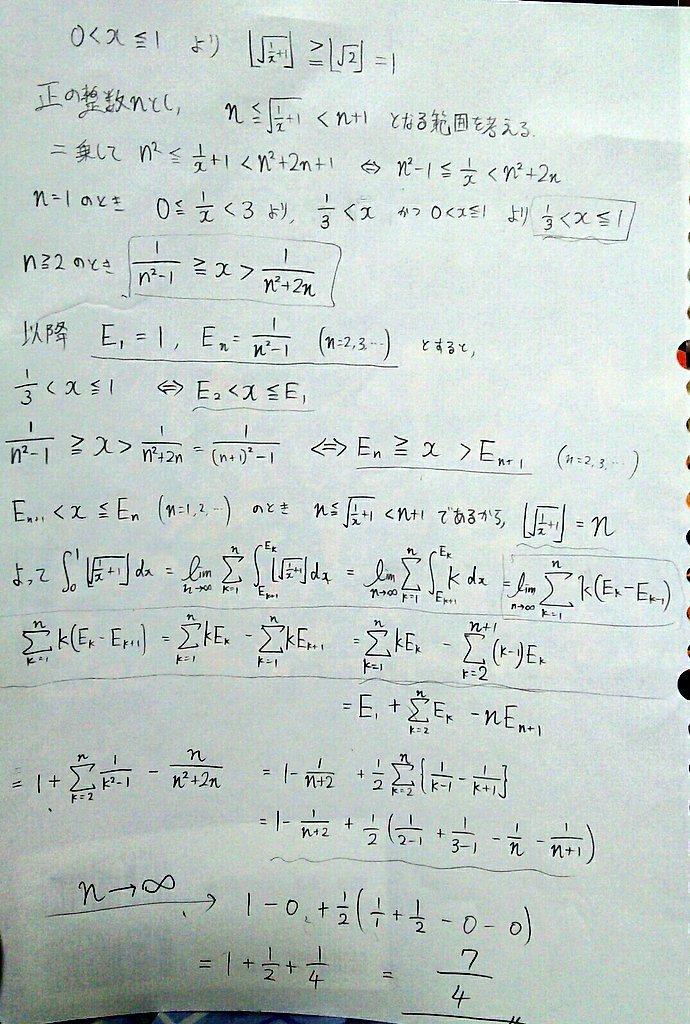 0 < x ≦ 1 より ⌊√(1/x+1)⌋ ≧ ⌊√2⌋ = 1
正の整数nとし, n ≦ √(1/x+1) < n+1 となる範囲を考える.
二乗して n² ≦ 1/x+1 < n²+2n+1 ⇔ n²-1 ≦ 1/x < n²+2n
n=1 のとき 0 ≦ 1/x < 3 より, 1/3 < x かつ 0<x≦1 より 1/3 < x ≦ 1
n≧2 のとき 1/(n²-1) ≧ x > 1/(n²+2n)
以降 E₁ = 1, Eₙ = 1/(n²-1) (n=2,3,…) とすると,
1/3 < x ≦ 1 ⇔ E₂ < x ≦ E₁
1/(n²-1) ≧ x > 1/(n²+2n) = 1/((n+1)²-1) ⇔ Eₙ ≧ x > Eₙ₊₁ (n=2,3,…)
Eₙ₊₁ < x ≦ Eₙ (n=1,2,…) のとき n≦√(1/x+1) < n+1 であるから, ⌊√(1/x+1)⌋ = n
よって ∫₀¹ ⌊√(1/x+1)⌋ dx = lim_{n→∞} Σ_{k=1}^{n} ∫_{E_{k+1}}^{E_k} ⌊√(1/x+1)⌋ dx = lim_{n→∞} Σ_{k=1}^{n} ∫_{E_{k+1}}^{E_k} k dx = lim_{n→∞} Σ_{k=1}^{n} k(E_k - E_{k+1})
Σ_{k=1}^{n} k(E_k - E_{k+1}) = Σ_{k=1}^{n} kE_k - Σ_{k=1}^{n} kE_{k+1} = Σ_{k=1}^{n} kE_k - Σ_{k=2}^{n+1} (k-1)E_k
= E₁ + Σ_{k=2}^{n} E_k - nE_{n+1}
= 1 + Σ_{k=2}^{n} 1/(k²-1) - n/(n²+2n) = 1 - 1/(n+2) + 1/2 Σ_{k=2}^{n} {1/(k-1) - 1/(k+1)}
= 1 - 1/(n+2) + 1/2 (1/(2-1) + 1/(3-1) - 1/n - 1/(n+1))
n→∞ → 1 - 0 + 1/2 (1/1 + 1/2 - 0 - 0)
= 1 + 1/2 + 1/4 = 7/4